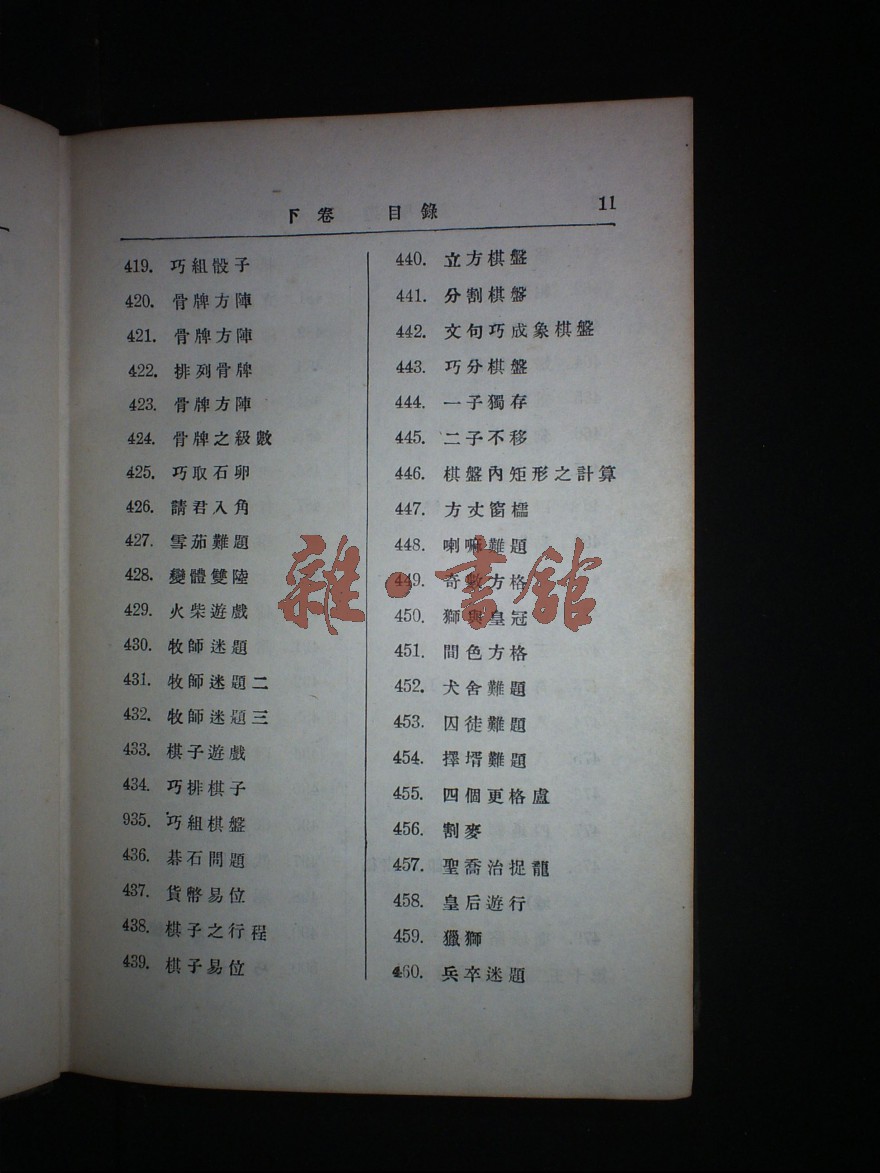 下卷 目錄 11
419. 巧組骰子
420. 骨牌方陣
421. 骨牌方陣
422. 排列骨牌
423. 骨牌方陣
424. 骨牌之級數
425. 巧取石卵
426. 請君入角
427. 雪茄難題
428. 變體雙陸
429. 火柴遊戲
430. 牧師迷題
431. 牧師迷題二
432. 牧師迷題三
433. 棋子遊戲
434. 巧排棋子
935. 巧組棋盤
436. 碁石問題
437. 貨幣易位
438. 棋子之行程
439. 棋子易位
440. 立方棋盤
441. 分割棋盤
442. 文句巧成象棋盤
443. 巧分棋盤
444. 一子獨存
445. 二子不移
446. 棋盤內矩形之計算
447. 方丈窗櫺
448. 喇嘛難題
449. 奇數方格
450. 獅與皇冠
451. 間色方格
452. 犬舍難題
453. 囚徒難題
454. 擇壻難題
455. 四個更格盧
456. 割麥
457. 聖喬治捉龍
458. 皇后遊行
459. 獵獅
460. 兵卒迷題
雜·書館